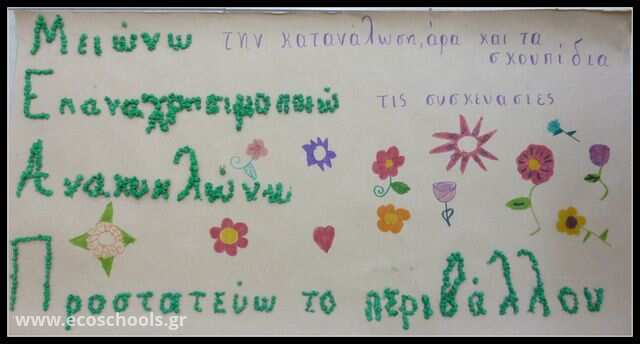 Μειώνω την κατανάλωση, άρα και τα
σκουπίδια
Επαναχρησιμοποιώ τις συσκευασίες
Ανακυκλώνω
Προστατεύω το περιβάλλον
www.ecoschools.gr